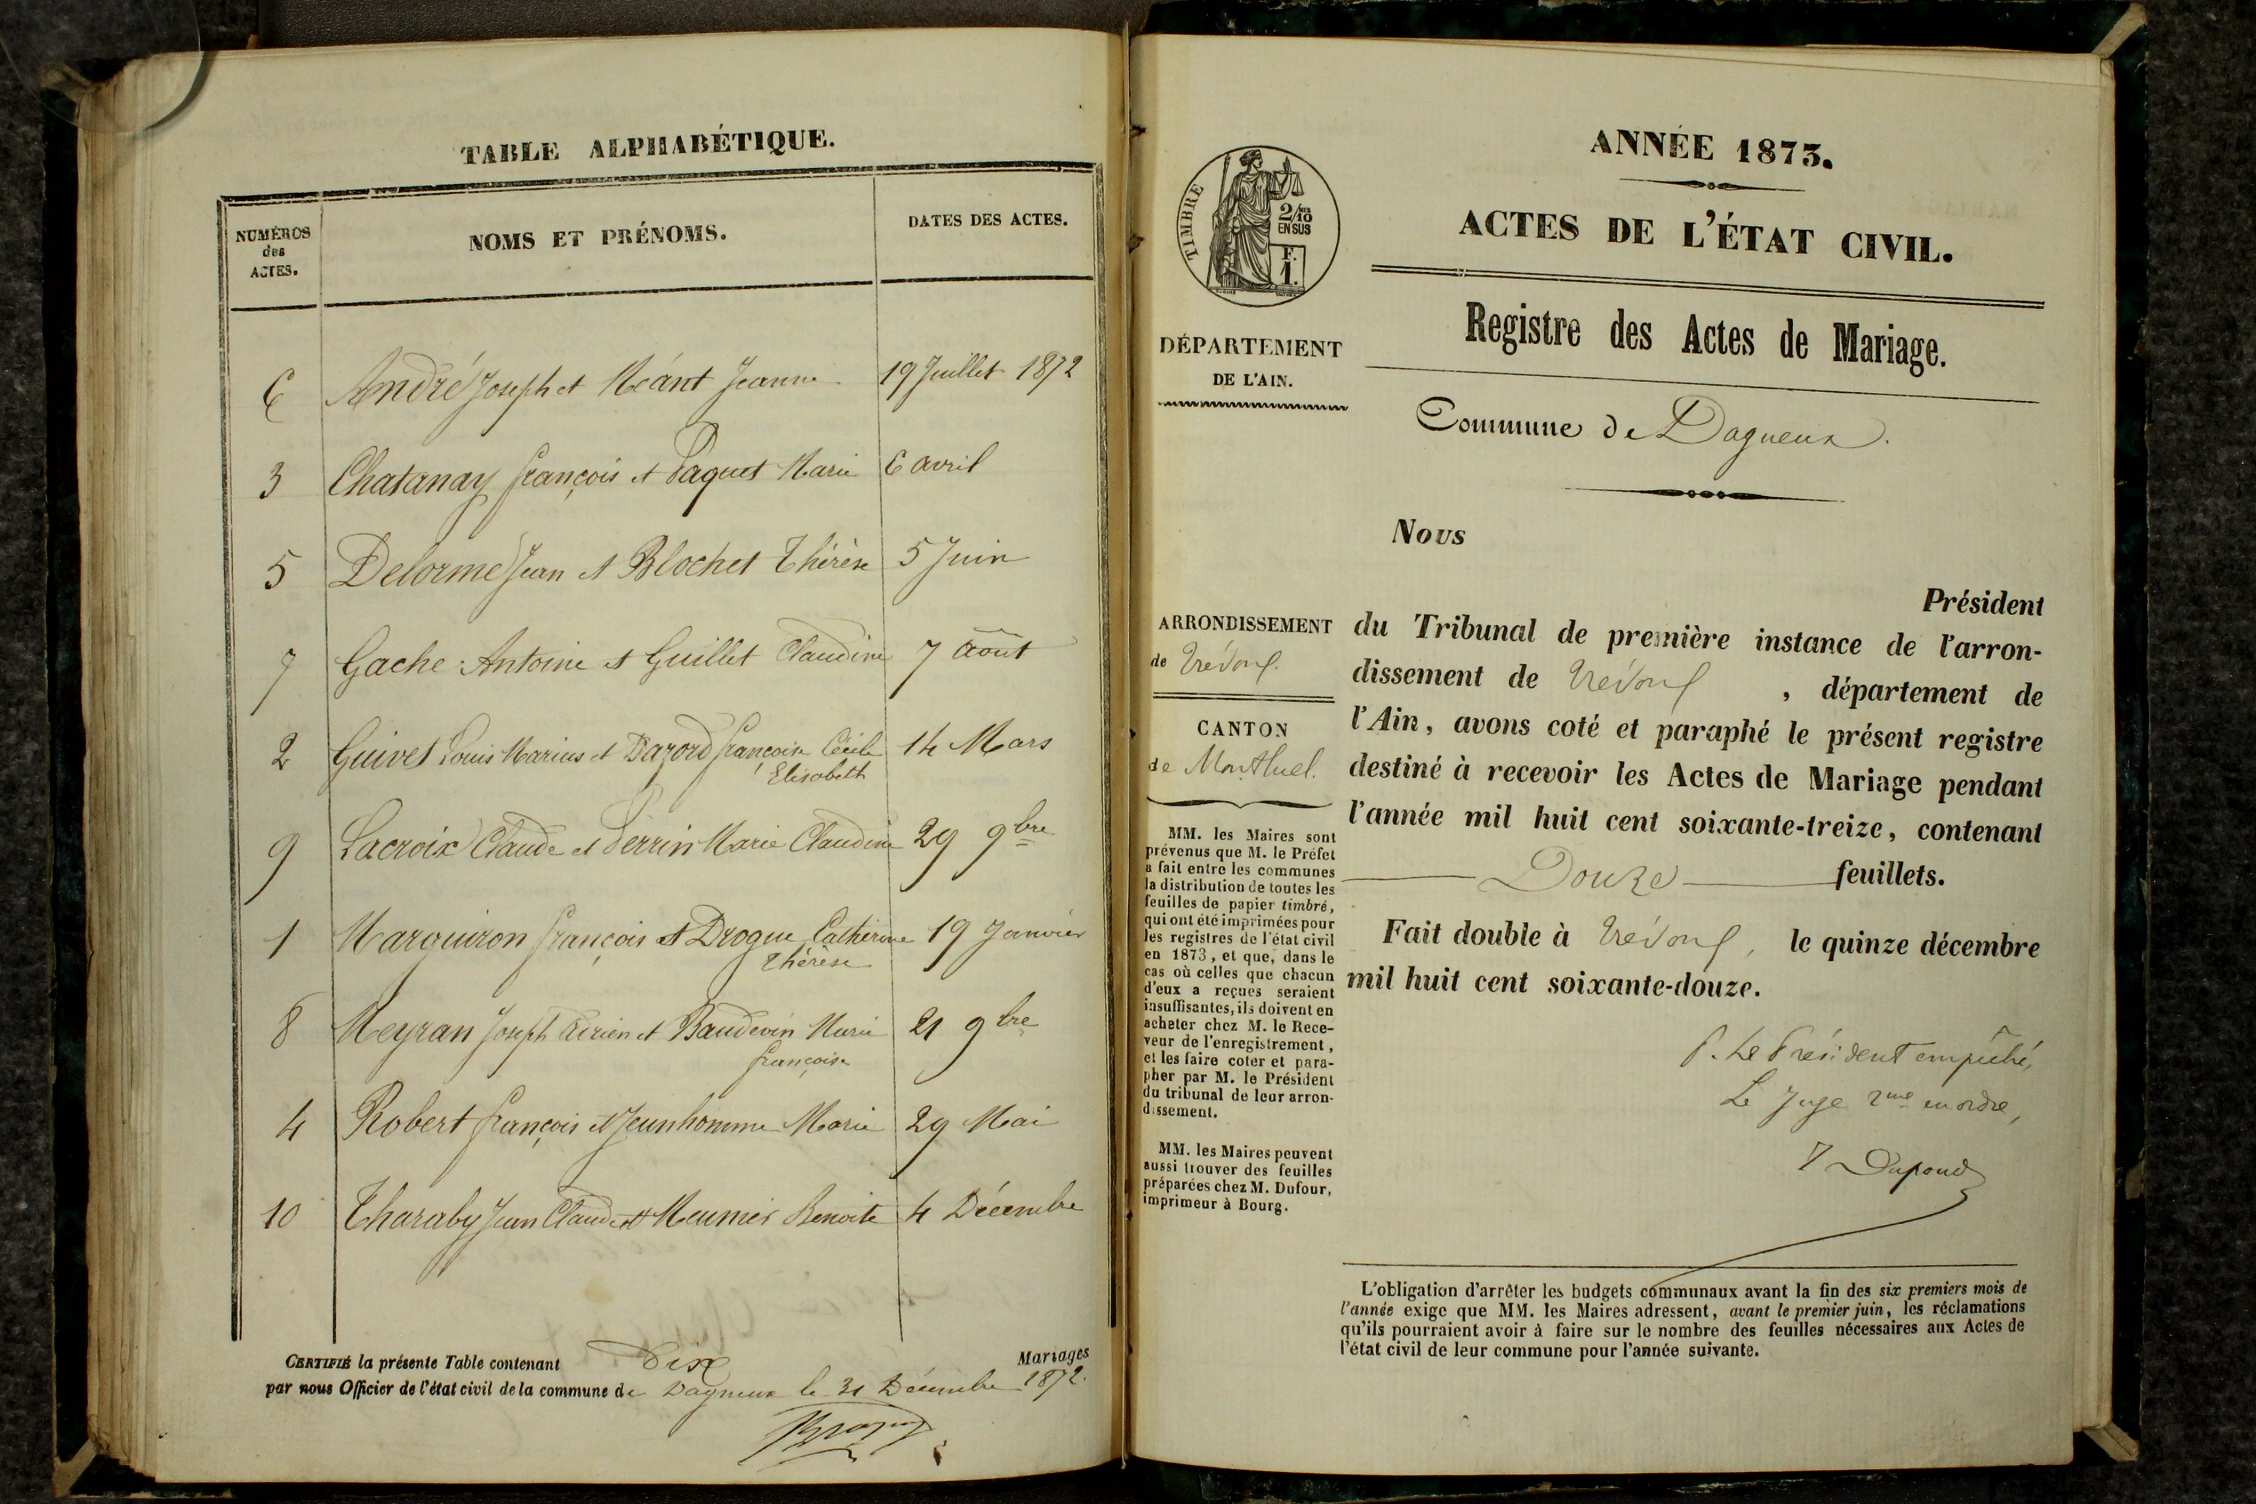 TABLE ALPHABÉTIQUE.
NUMÉROS des ACTES.
NOMS ET PRÉNOMS.
DATES DES ACTES.
6 André Joseph et Méant Jeanne 19 Juillet 1872
3 Chatanay françois et Paquet Marie 6 avril
5 Delorme Jean et Blochet Thérèse 5 Juin
7 Gache Antoine et Guillet Claudine 7 Août
2 Guivet Louis Marius et Dazord françoise Cécile 14 Mars
Elisabeth
9 Lacroix Claude et Perrin Marie Claudine 29 9bre
1 Marguiron françois et Drogue Catherine 19 Janvier
Thérèse
8 Meyran Joseph et Baudevin Marie 21 9bre
françoise
4 Robert françois et Jeunhomme Marie 29 Mai
10 Tharaby Jean Claude et Meunier Benoite 4 Décembre
CERTIFIÉ la présente Table contenant Dix Mariages
par nous Officier de l'état civil de la commune de Dagneux le 31 Décembre 1872.
TIMBRE
2/10 EN SUS
F. 1.
DÉPARTEMENT
DE L'AIN.
ARRONDISSEMENT
de Trévoux.
CANTON
de Montluel.
MM. les Maires sont
prévenus que M. le Préfet
a fait entre les communes
la distribution de toutes les
feuilles de papier timbré,
qui ont été imprimées pour
les registres de l'état civil
en 1873, et que, dans le
cas où celles que chacun
d'eux a reçues seraient
insuffisantes, ils doivent en
acheter chez M. le Rece-
veur de l'enregistrement,
et les faire coter et para-
pher par M. le Président
du tribunal de leur arron-
dissement.
MM. les Maires peuvent
aussi trouver des feuilles
préparées chez M. Dufour,
imprimeur à Bourg.
ANNÉE 1873.
ACTES DE L'ÉTAT CIVIL.
Registre des Actes de Mariage.
Commune de Dagneux.
Nous
Président
du Tribunal de première instance de l'arron-
dissement de Trévoux, département de
l'Ain, avons coté et paraphé le présent registre
destiné à recevoir les Actes de Mariage pendant
l'année mil huit cent soixante-treize, contenant
Douze feuillets.
Fait double à Trévoux, le quinze décembre
mil huit cent soixante-douze.
P. Le Président empêché,
Le Juge 2me en ordre,
Dupond
L'obligation d'arrêter les budgets communaux avant la fin des six premiers mois de
l'année exige que MM. les Maires adressent, avant le premier juin, les réclamations
qu'ils pourraient avoir à faire sur le nombre des feuilles nécessaires aux Actes de
l'état civil de leur commune pour l'année suivante.